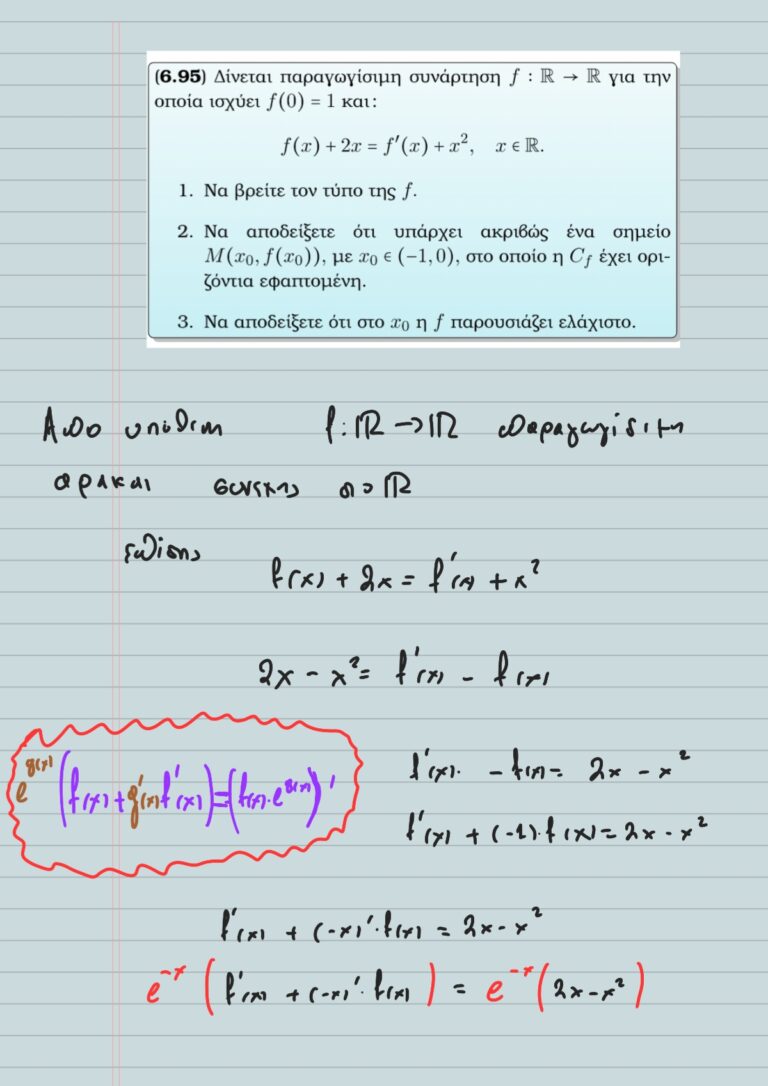 (6.95) Δίνεται παραγωγίσιμη συνάρτηση f : ℝ → ℝ για την
οποία ισχύει f(0) = 1 και:
f(x) + 2x = f′(x) + x², x ∈ ℝ.
1. Να βρείτε τον τύπο της f.
2. Να αποδείξετε ότι υπάρχει ακριβώς ένα σημείο
M(x₀, f(x₀)), με x₀ ∈ (−1, 0), στο οποίο η C_f έχει ορι-
ζόντια εφαπτομένη.
3. Να αποδείξετε ότι στο x₀ η f παρουσιάζει ελάχιστο.
Απο υποθεση f: ℝ → ℝ παραγωγίσιμη
αρα και συνεχης στο ℝ
επίσης
f(x) + 2x = f′(x) + x²
2x − x² = f′(x) − f(x)
e^{g(x)} (f(x) + g′(x) f′(x)) = (f(x)·e^{g(x)})′
f′(x)· − f(x) = 2x − x²
f′(x) + (−1)·f(x) = 2x − x²
f′(x) + (−x)′·f(x) = 2x − x²
e^{−x} (f′(x) + (−x)′·f(x)) = e^{−x} (2x − x²)